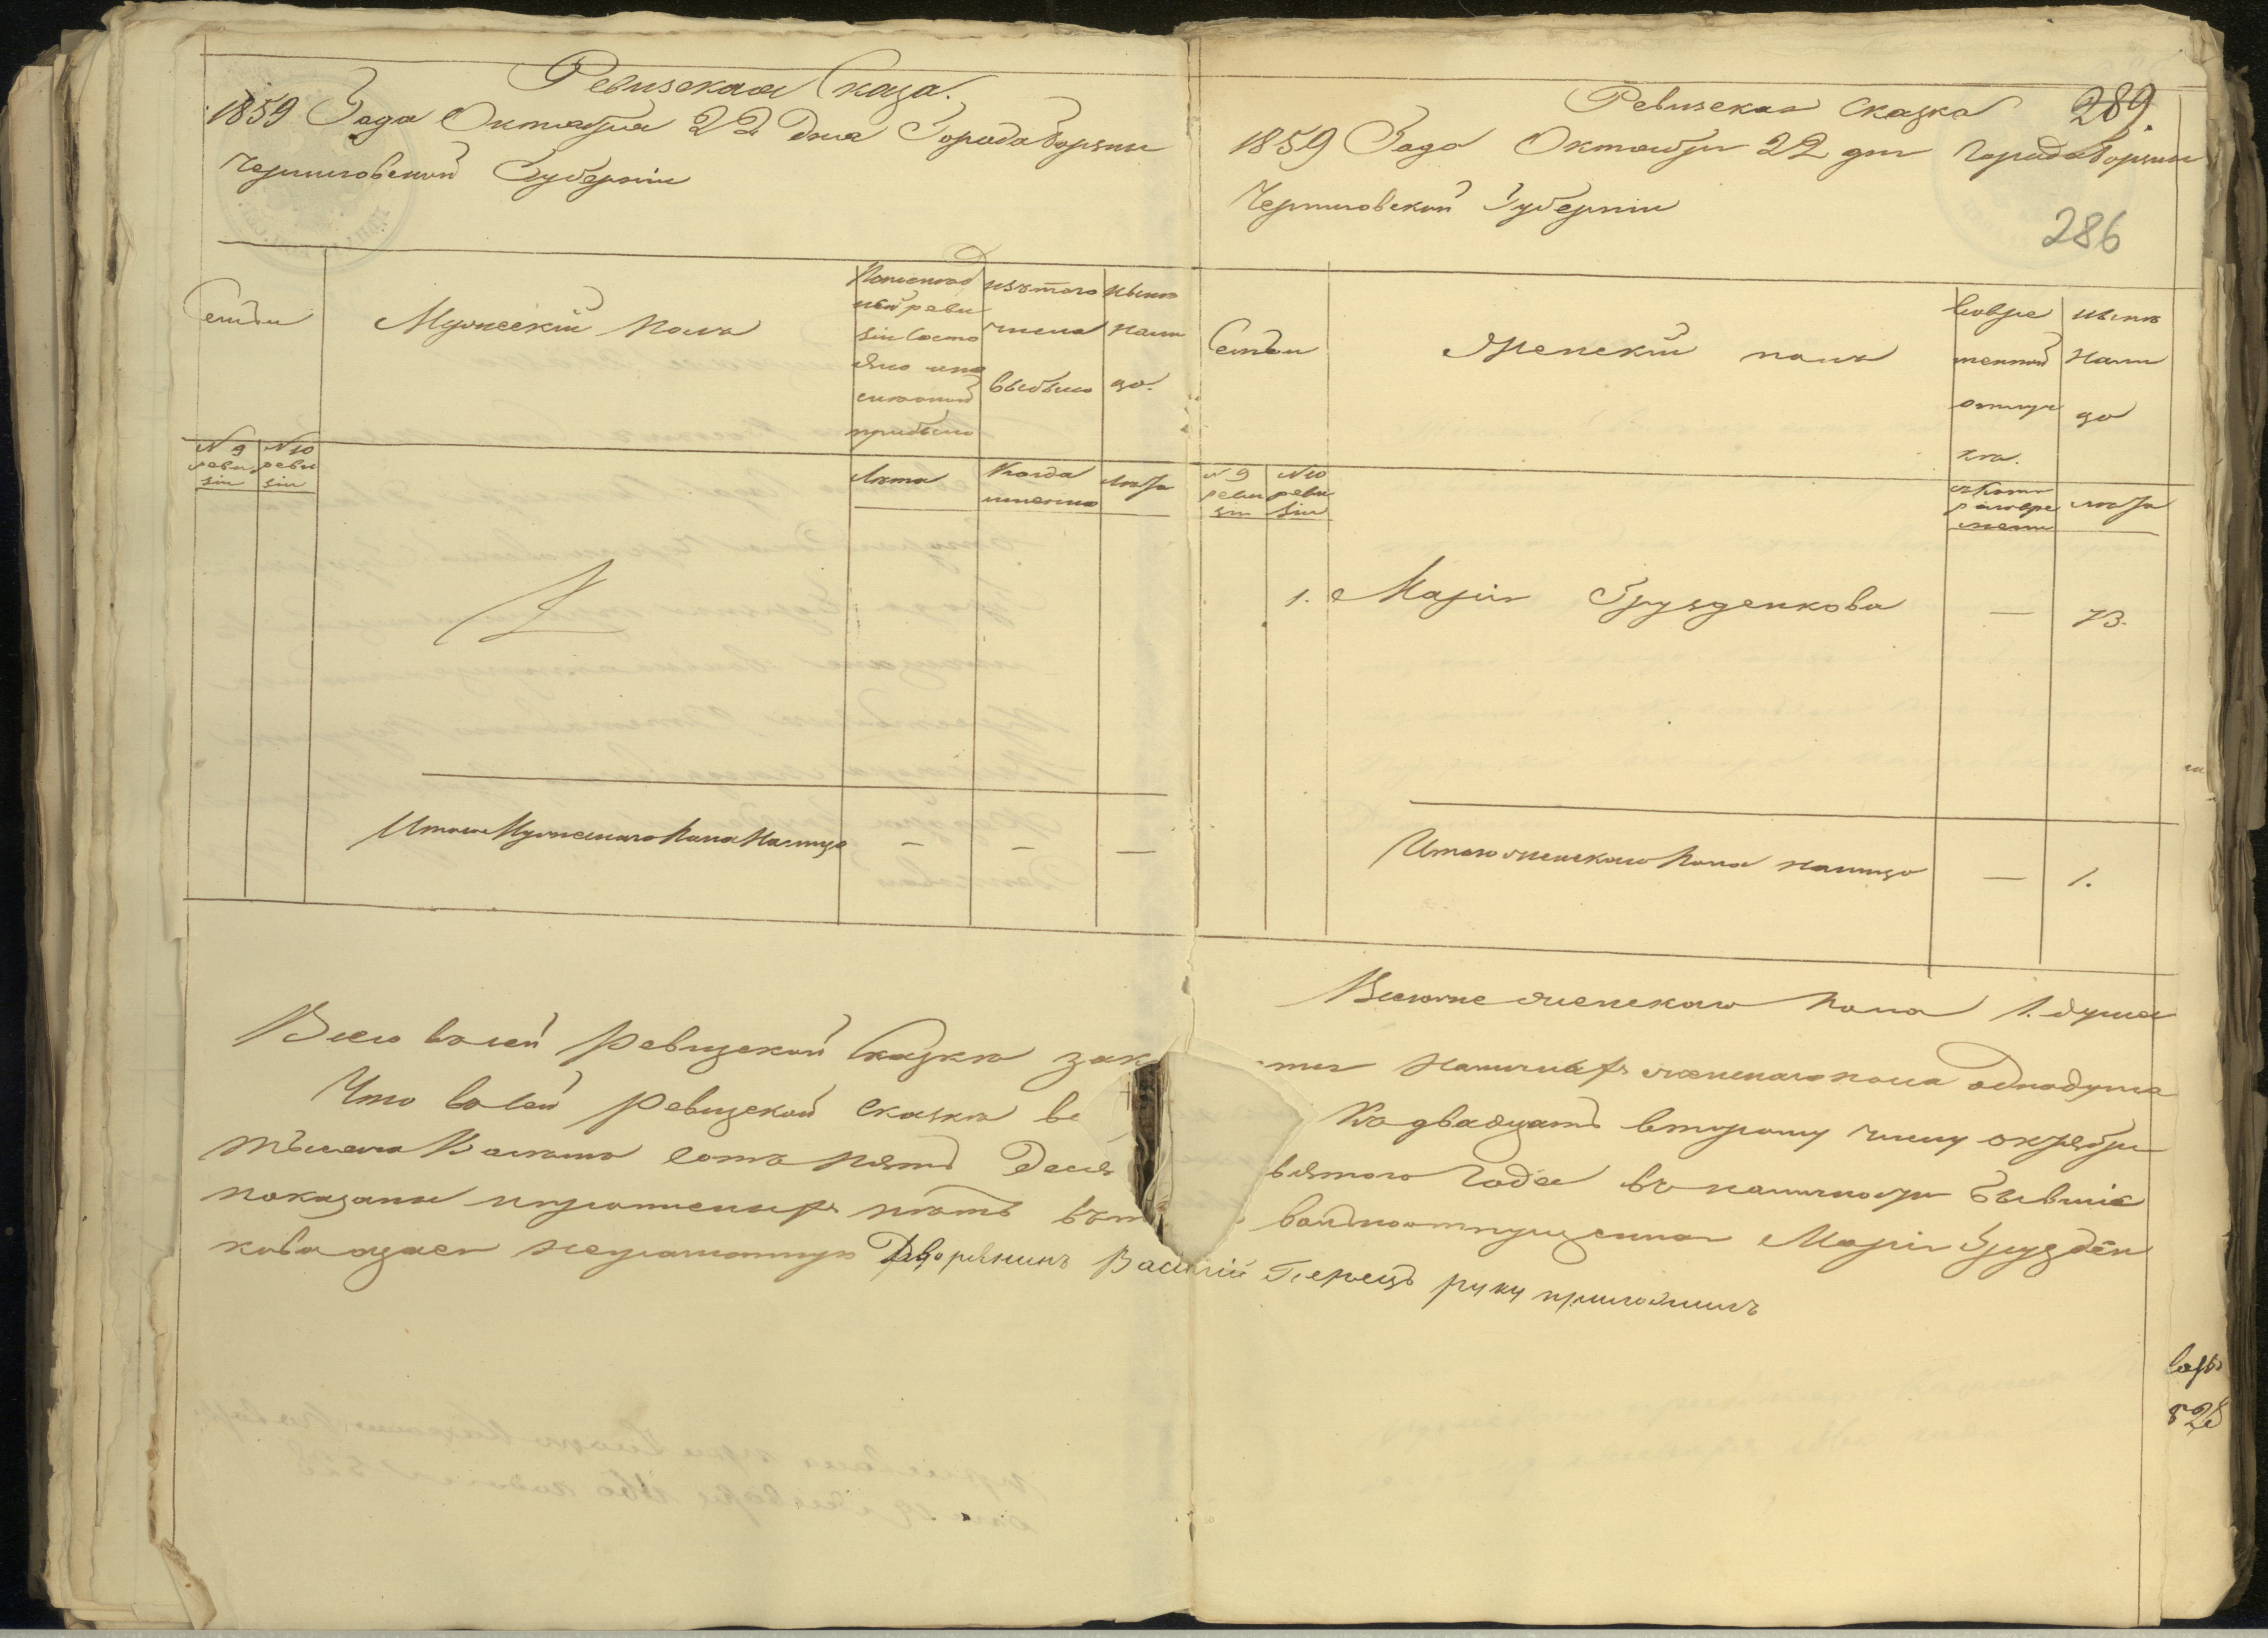 Ревизская Сказа.
1859 Года Октября 22 дня Города Борзны
Черниговской Губерніи
Семьи
Мужескій полъ
По последней ревизіи состояло и по оной прибыло
изъ того числа выбыло
нынѣ на лицо.
№ 9 ревизіи
№ 10 ревизіи
Лѣта
Когда именно
лѣта
Итого Мужескаго пола налицо — — —
Ревизская Сказка 289.
1859 Года Октября 22 дня Города Борзны
Черниговской Губерніи
286
Семьи
Женскій полъ
Во временной отлучкѣ.
нынѣ на лицо
№ 9 ревизіи
№ 10 ревизіи
лѣта
1. Марія Груздленкова — 73.
Итого женскаго пола налицо — 1.
Всего же женскаго пола 1. душа
Всего в сей Ревизской Сказкѣ зак ется наличныхъ женскаго пола одна душа
Что в сей Ревизской сказкѣ вс Къ двадцать второму числу октября
тысяча Восемь сотъ пять деся вятого Года въ наличности бывшіе
показаны и пропиеныхъ нѣтъ въ т вольноотпущенная Марія Груздѣн
кова а за ея неграмотную Дворянинъ Василій Перецъ руку приложилъ
528